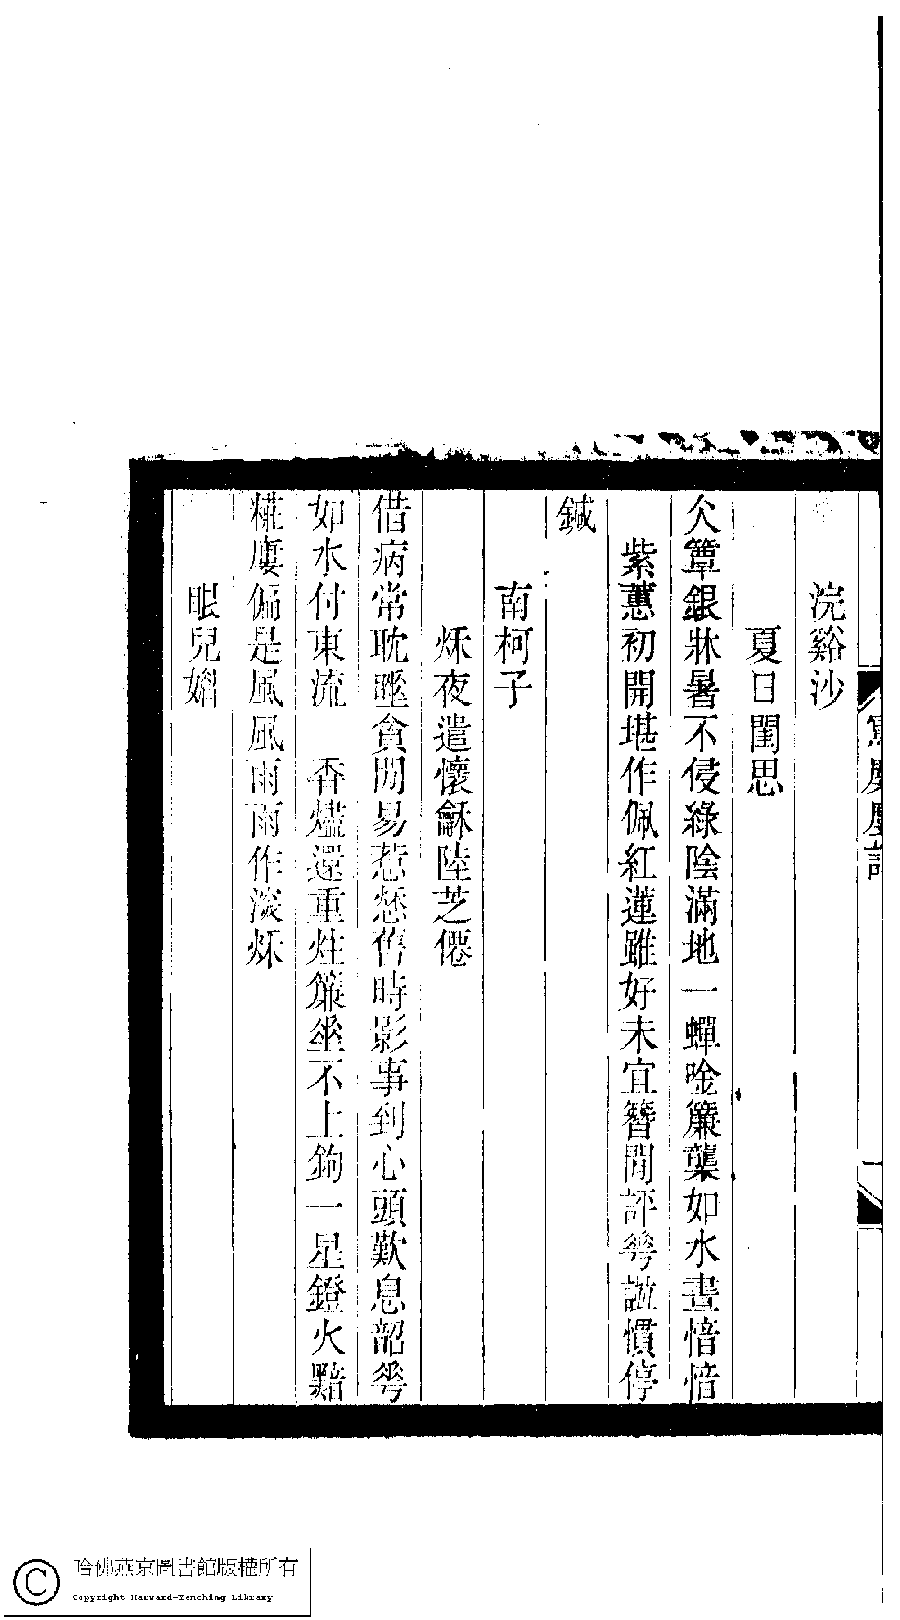 浣谿沙
夏日閨思
仌簟銀牀暑不侵綠陰滿地一蟬唫簾櫳如水晝愔愔
紫蕙初開堪作佩紅蓮雖好未宜簪閒評花譜慣停
鍼
南柯子
秌夜遣懷龢陸芝僊
借病常耽睡貪閒易惹愁舊時影事到心頭歎息韶華
如水付東流　香燼還重炷簾垂不上鉤一星鐙火黯
糚廔偏是風風雨雨作淡秌
眼兒媚
哈佛燕京圖書館版權所有
Copyright Harvard-Yenching Library